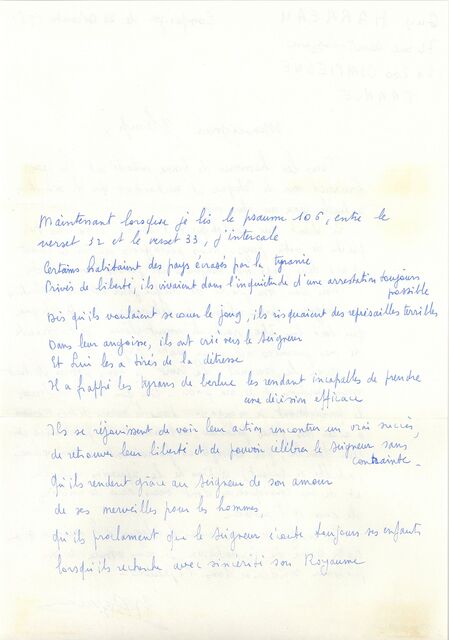 Maintenant lorsque je lis le psaume 106, entre le
verset 32 et le verset 33, j'intercale
Certains habitaient des pays écrasés par la tyranie
Privés de liberté, ils vivaient dans l'inquiétude d'une arrestation toujours
possible
Dès qu'ils voulaient secouer le joug, ils risquaient des représailles terribles
Dans leur angoisse, ils ont crié vers le Seigneur
Et Lui les a tirés de la détresse
Il a frappé les tyrans de berlue les rendant incapables de prendre
une décision efficace
Ils se réjouissent de voir leur action rencontrer un vrai succès,
de retrouver leur liberté et de pouvoir célébrer le Seigneur sans
contrainte.
Qu'ils rendent grâce au Seigneur de son amour
de ses merveilles pour les hommes,
qu'ils proclament que le Seigneur écoute toujours ses enfants
lorsqu'ils recherche avec sincérité son Royaume